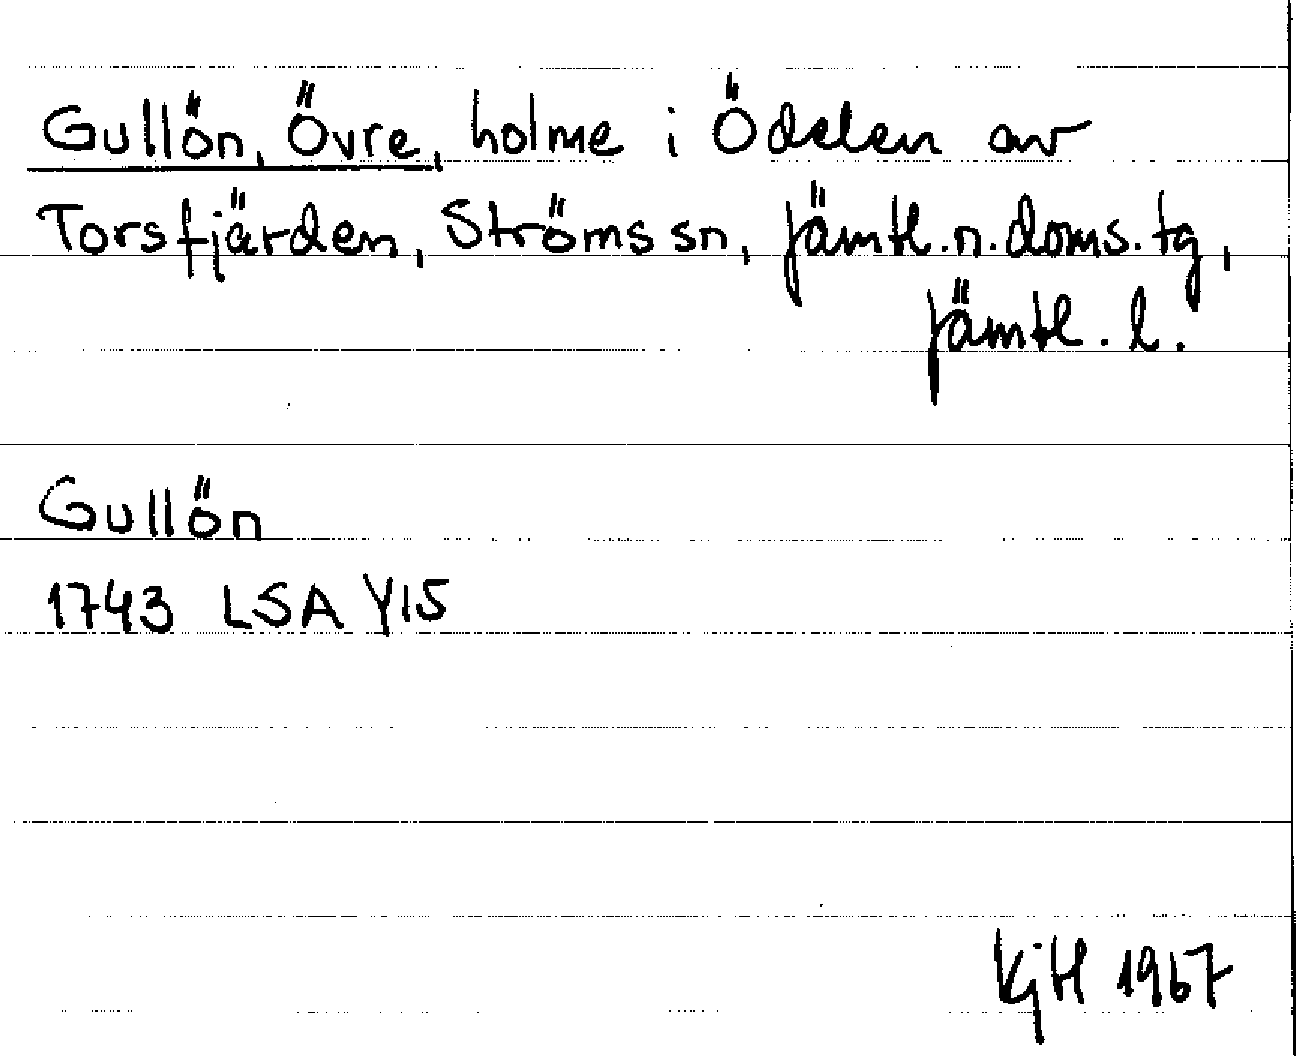 Gullön, Övre, holme i Ödelen av
Torsfjärden, Ströms sn, Jämtl. n. doms. tg,
Jämtl. l.
Gullön
1743 LSA Y15
KjH 1967